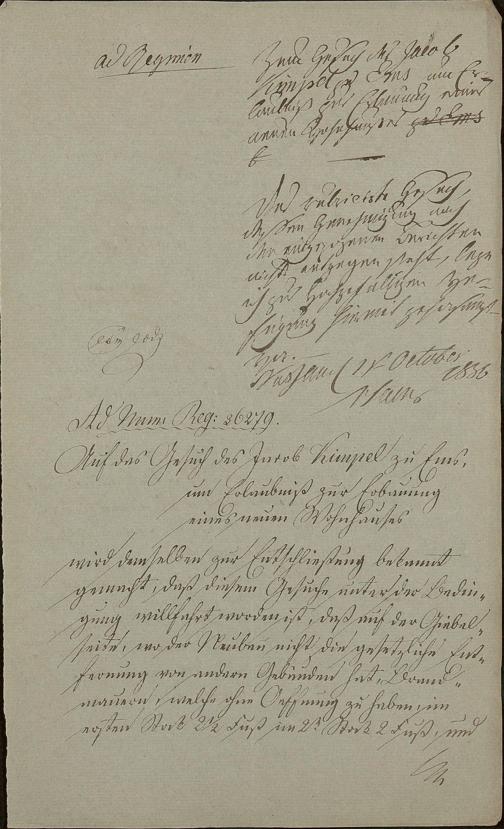 ad Regimen
Zum Gesuch des Jacob
Kimpel zu Ems um Er-
laubniß zur Erbauung eines
neuen Wohnhauses zu Ems
Das rubricirte Gesuch,
dessen Genehmigung nach
den eingezogenen Berichten
nichts entgegen steht, lege
ich zur hochgefälligen Ver-
fügung hiermit gehorsamst
vor.
Nassau October
1836
Ad Num: Reg: 26279.
Auf das Gesuch des Jacob Kimpel zu Ems,
um Erlaubniß zur Erbauung
eines neuen Wohnhauses
wird demselben zur Entschließung bekannt
gemacht, daß diesem Gesuche unter der Bedin-
gung willfahrt worden ist, daß auf der Giebel-
seite, wo der Neubau nicht die gesetzliche Ent-
fernung von andern Gebäuden hat, Brand-
mauern, welche ohne Oeffnung zu haben, im
ersten Stock 2½ Fuß im 2t Stock 2 Fuß, und
im